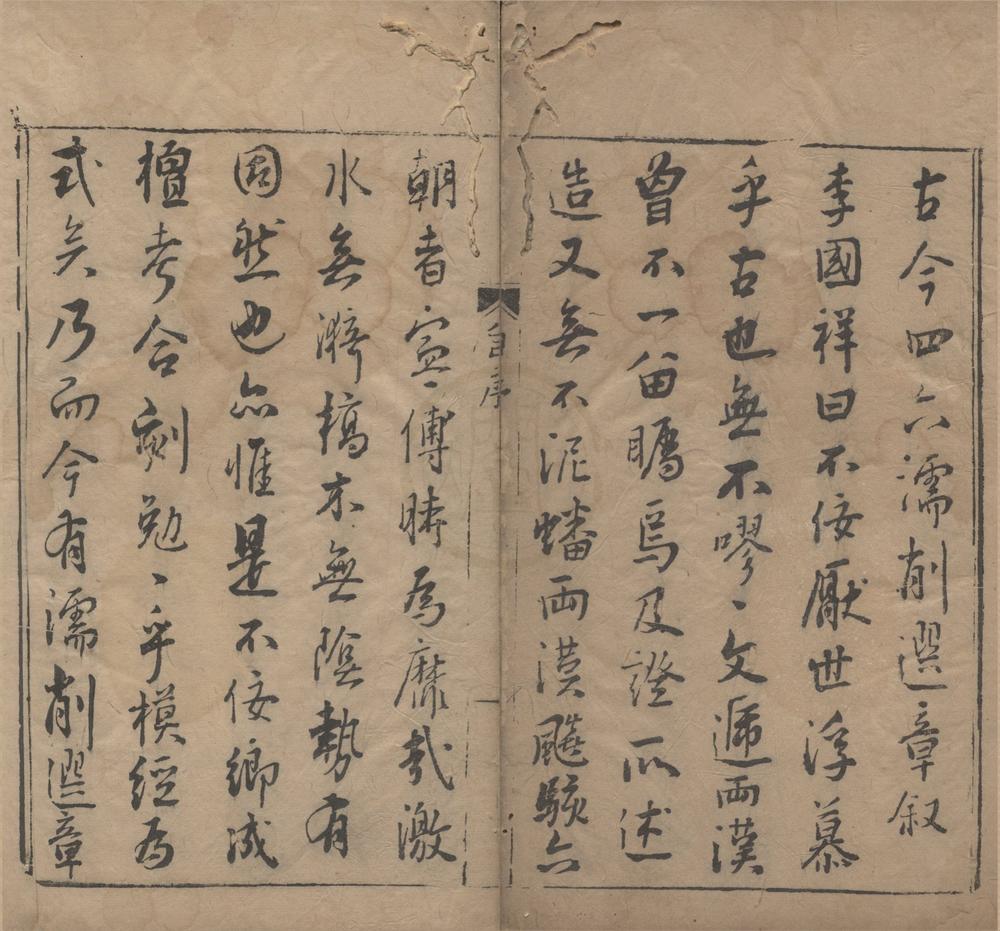 古今四六濡削選章叙
李國祥曰不佞厭世浮慕
乎古也無不嘐、文遞兩漢
曾不一留矚焉及證所述
造又無不泥蟠兩漢飈駭六
自序
朝者寧傅時為靡哉激
水無漪槁木無陰勢有
固然也亦惟是不佞鄉咸
檀考合刻勉、乎模經為
式矣乃而今有濡削選章